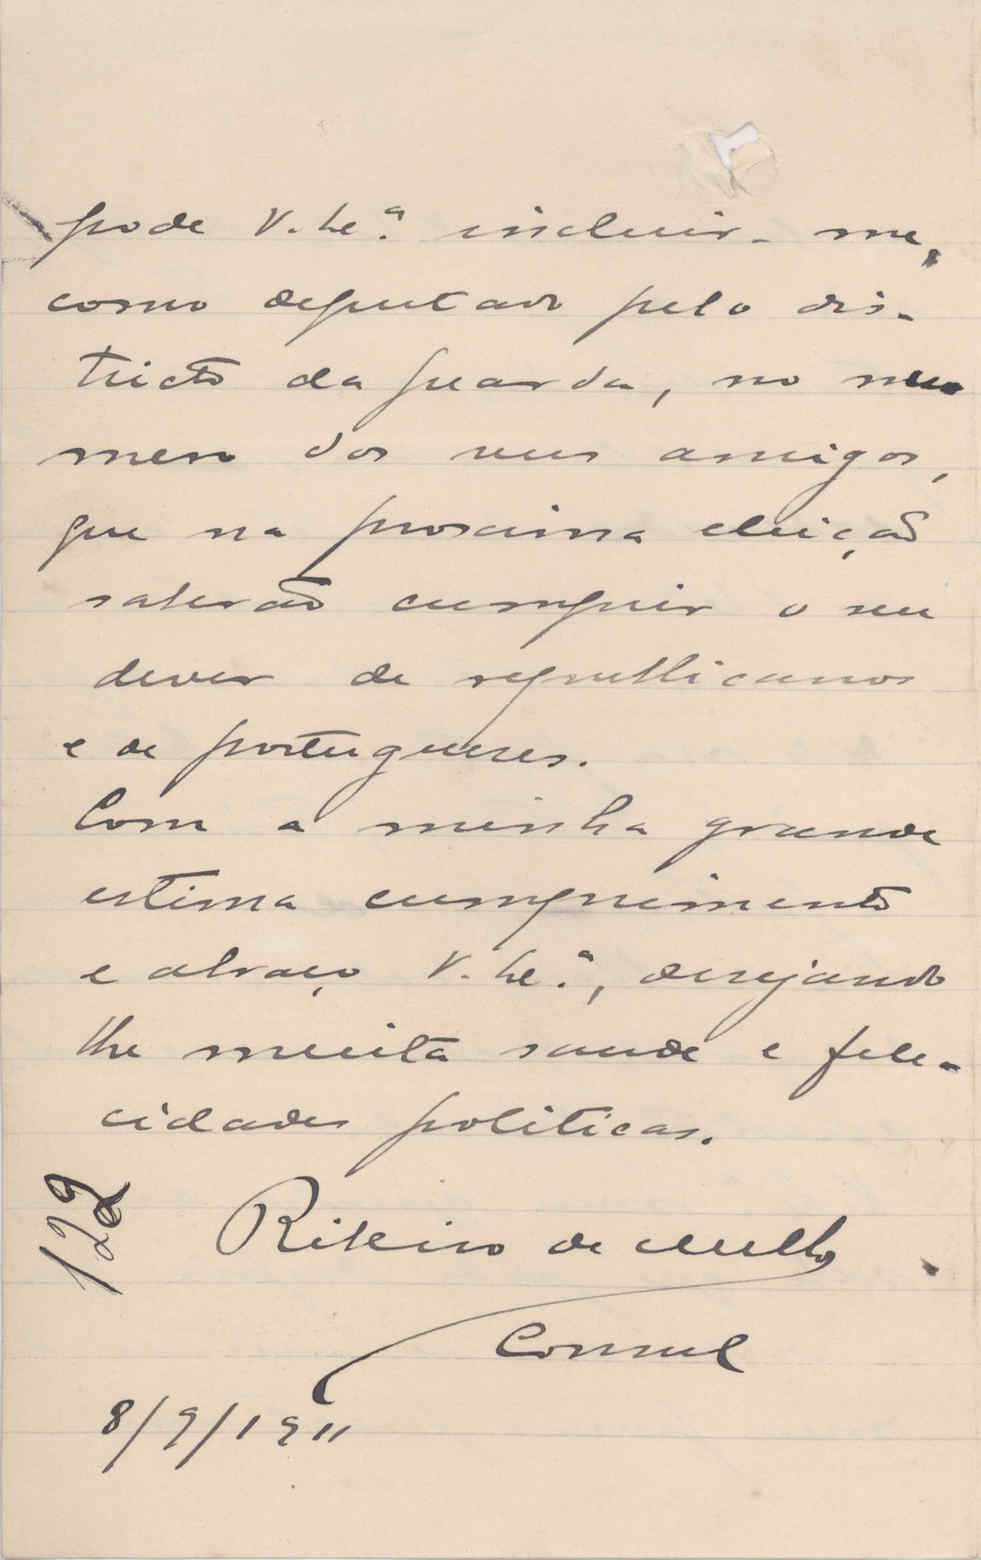 pode V. Exª. incluir-me,
como deputado pelo dis-
tricto da Guarda, no nu
mero dos seus amigos,
que na proxima eleição
saberão cumprir o seu
dever de republicanos
e de portugueses.
Com a minha grande
estima cumprimento
e abraço V. Exª., desejando
lhe muita saude e fele-
cidades politicas.
122
Ribeiro de Mello
Consul
8/9/1911